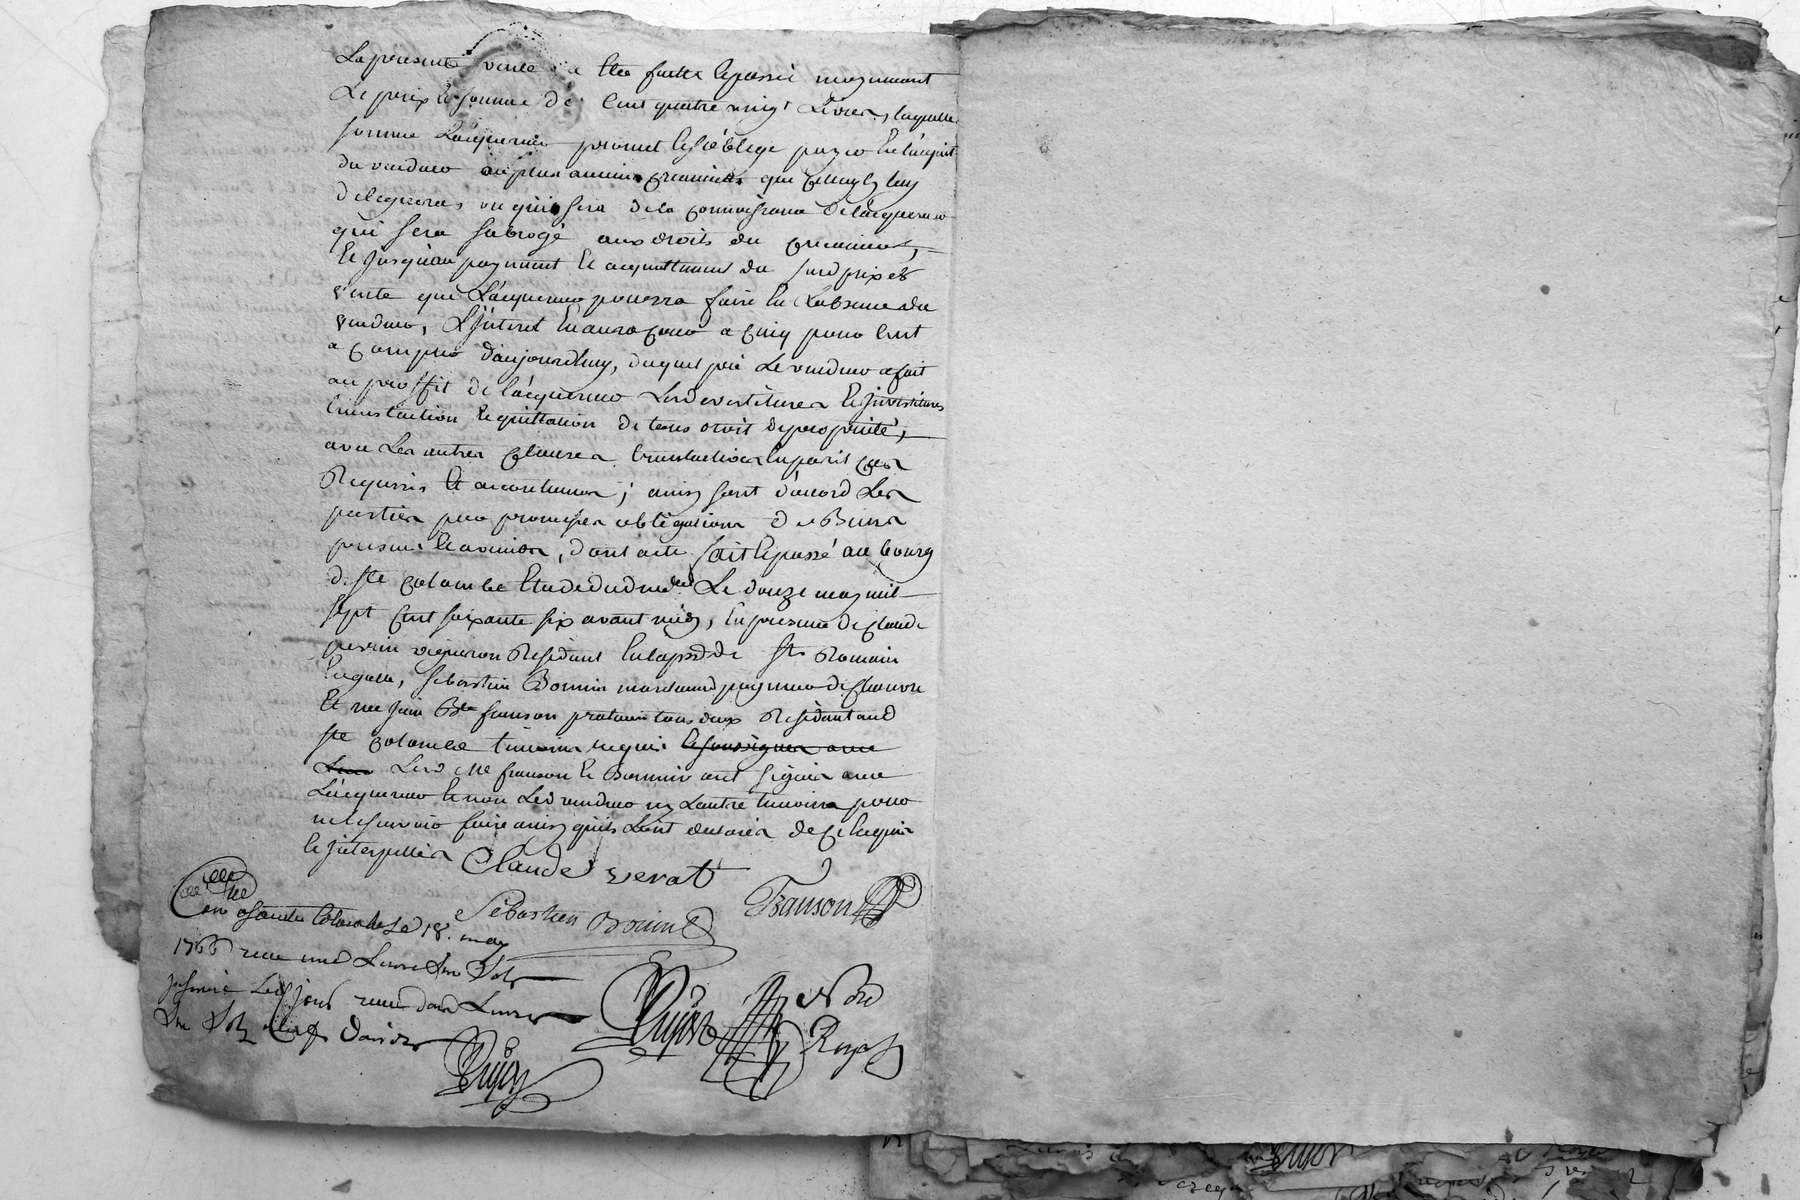 La presente vente a ete faitte et passée moyennant
Le prix et somme de Cent quatre vingt Livres, laquelle
somme L'acquereur promet et s'oblige payer En l'acquit
du vendeur aux plus anciens creanciers que
ou qui sera de la connoissance de l'acquereur
qui sera subrogé aux droits du creancier,
Et jusqu'au payement Et acquittement du susd prix de
vente que L'acquereur pourra faire En L'absence du
vendeur, L'jnteret En aura cours a cinq pour Cent
a compter d'aujourdhuy, duquel prix Le vendeur a fait
au proffit de l'acquereur Les devestitures Et jnvestitures
translation Et quittation de tous droit de proprieté,
avec Les autres clauses translatives En pareil cas
Requises Et accoutumées; ainsy sont d'accord Les
parties par promesses obligations de Biens
presens Et avenir, dont acte fait Et passé au bourg
de Ste colombe Etude dud Le douze may mil
sept Cent soixante six avant midy, En presence de claude
vigneron Residant En la psse de St Romain
En galle, Sebastien Bonnin marchand peigneur de chanvre
Et me jean Bte franson praticien tous deux Residant aud
Ste colombe temoins requis et soussignes avec
Lesd me franson Et Bonnin ont signés avec
L'acquereur Et non Led vendeur ny L'autre temoins pour
ne le scavoir faire ainsy qu'ils L'ont declarés de ce Enquis
Et jnterpellés Claude verat
Sebastien Bonnin Franson
Con a Sainte Colombe Le 18. may
1766 recu une Livre Six Sols
jnsinué Led jour recu Livres
Six Sols
Dujos Nore
Royal
Dujos